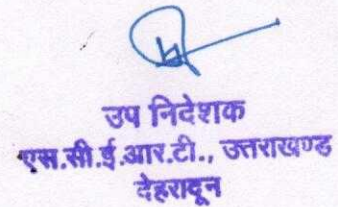 उप निदेशक
एस.सी.ई.आर.टी., उत्तराखण्ड
देहरादून